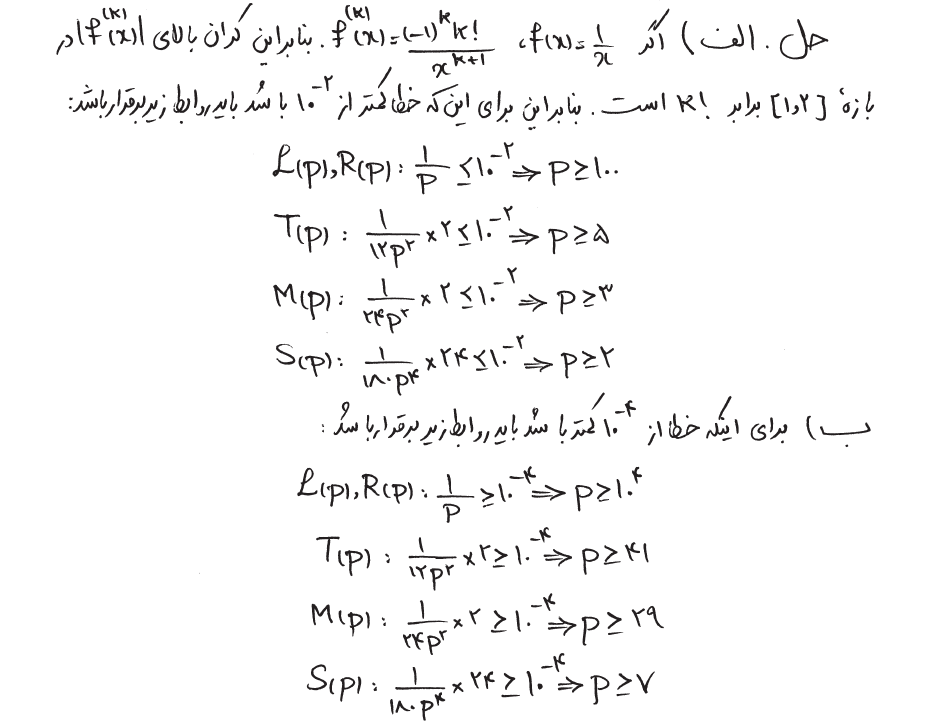 حل. الف) اگر f(x)=1/x، f^(k)(x)=(-1)^k k!/x^(k+1). بنابراین کران بالای |f^(k)(x)| در
بازهٔ [۱,۲] برابر k! است. بنابراین برای این که خطا کمتر از ۱۰^-۲ باشد باید روابط زیر برقرار باشد:
L(p),R(p): ۱/p ≤ ۱۰^-۲ ⇒ p ≥ ۱۰۰
T(p): ۱/۱۲p^۲ × ۲ ≤ ۱۰^-۲ ⇒ p ≥ ۵
M(p): ۱/۲۴p^۲ × ۲ ≤ ۱۰^-۲ ⇒ p ≥ ۳
S(p): ۱/۱۸۰p^۴ × ۲۴ ≤ ۱۰^-۲ ⇒ p ≥ ۲
ب) برای اینکه خطا از ۱۰^-۴ کمتر باشد باید روابط زیر برقرار باشد:
L(p),R(p): ۱/p ≥ ۱۰^-۴ ⇒ p ≥ ۱۰^۴
T(p): ۱/۱۲p^۲ × ۲ ≥ ۱۰^-۴ ⇒ p ≥ ۴۱
M(p): ۱/۲۴p^۲ × ۲ ≥ ۱۰^-۴ ⇒ p ≥ ۲۹
S(p): ۱/۱۸۰p^۴ × ۲۴ ≥ ۱۰^-۴ ⇒ p ≥ ۷